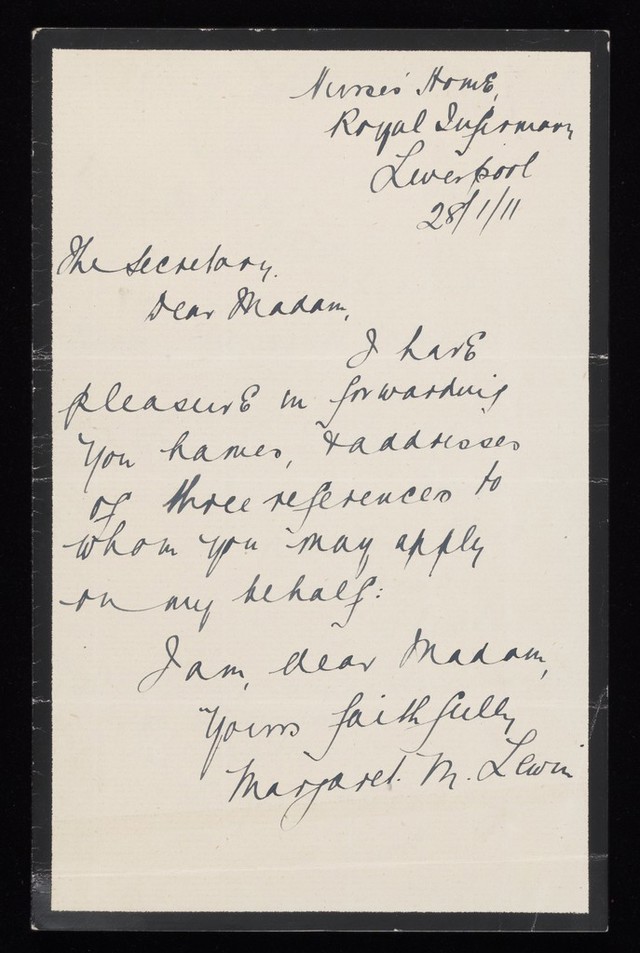 Nurses' Home,
Royal Infirmary
Liverpool
28/1/11
The Secretary.
Dear Madam,
I have
pleasure in forwarding
you names, & addresses
of three references to
whom you may apply
on my behalf:
I am, dear Madam,
Yours faithfully
Margaret. M. Lewin